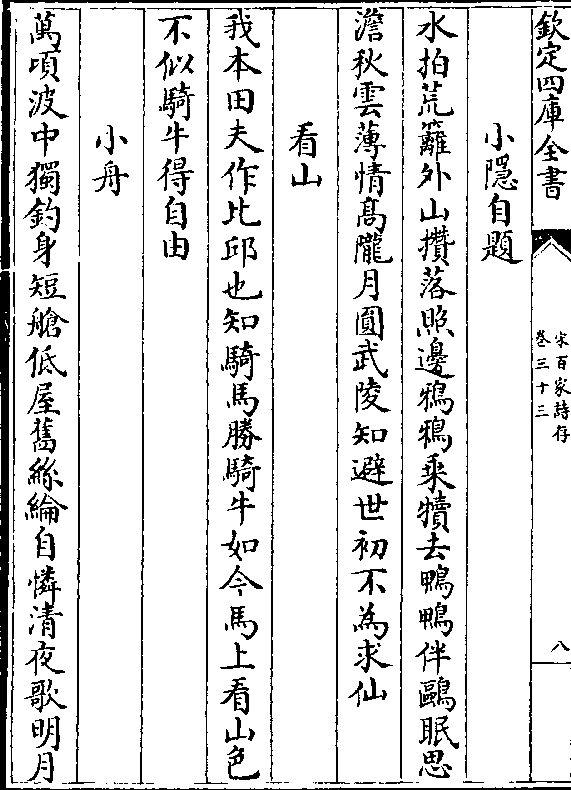 欽定四庫全書
宋百家詩存
卷三十三
八
小隱自題
水拍荒籬外山攢落照邊鴉鴉乗犢去鴨鴨伴鷗眠思
澹秋雲薄情髙隴月圓武陵知避世初不為求仙
看山
我本田夫作比邱也知騎馬勝騎牛如今馬上看山色
不似騎牛得自由
小舟
萬頃波中獨釣身短艙低屋舊絲綸自憐清夜歌明月